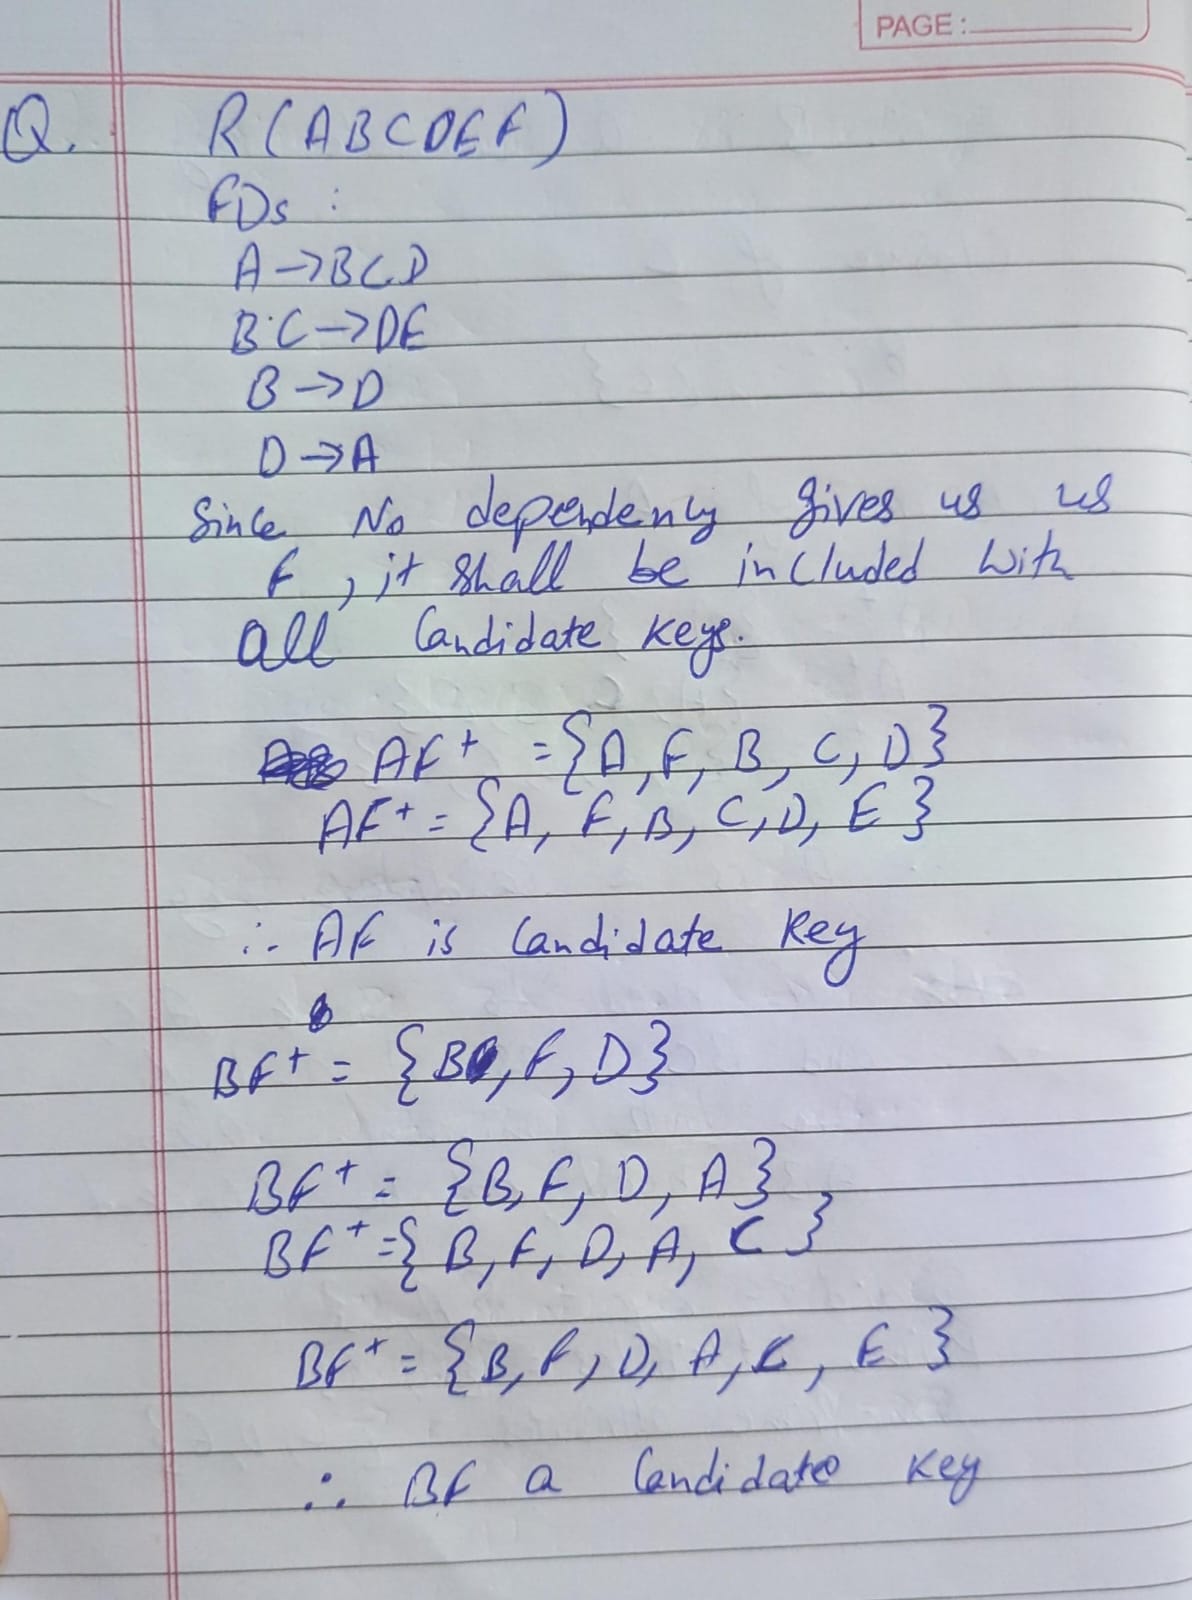 PAGE :
Q. R(ABCDEF)
FDs :
A→BCD
BC→DE
B→D
D→A
Since No dependency gives us us
F, it shall be included with
all Candidate keys.
AF+ = {A, F, B, C, D}
AF+ = {A, F, B, C, D, E}
∴ AF is Candidate Key
BF+ = {B, F, D}
BF+ = {B, F, D, A}
BF+ = {B, F, D, A, C}
BF+ = {B, F, D, A, C, E}
∴ BF a Candidate Key